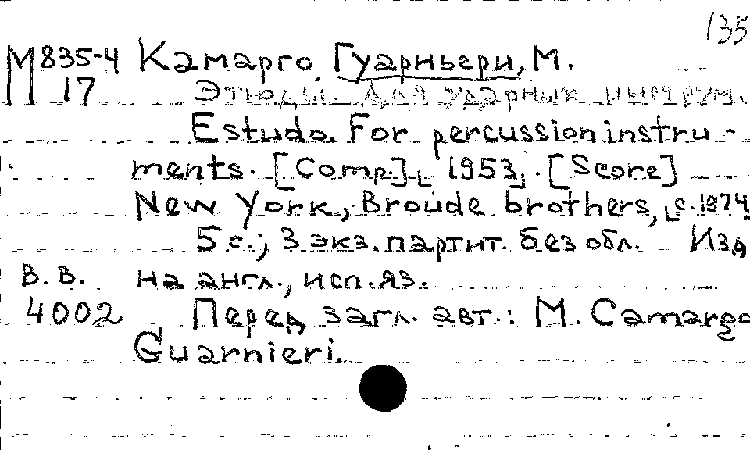 135
М 835-4 Камарго Гуарньери, М.
17 Этюды для ударных инструм.
Estudo. For percussion instru-
ments. [Comp], 1953. [Score]
New York, Broude brothers, с. 1974
5 с.; 3 экз. партит. без обл. Изд
В.В. на англ., исп. яз.
4002 Перед загл. авт.: M. Camargo
Guarnieri.